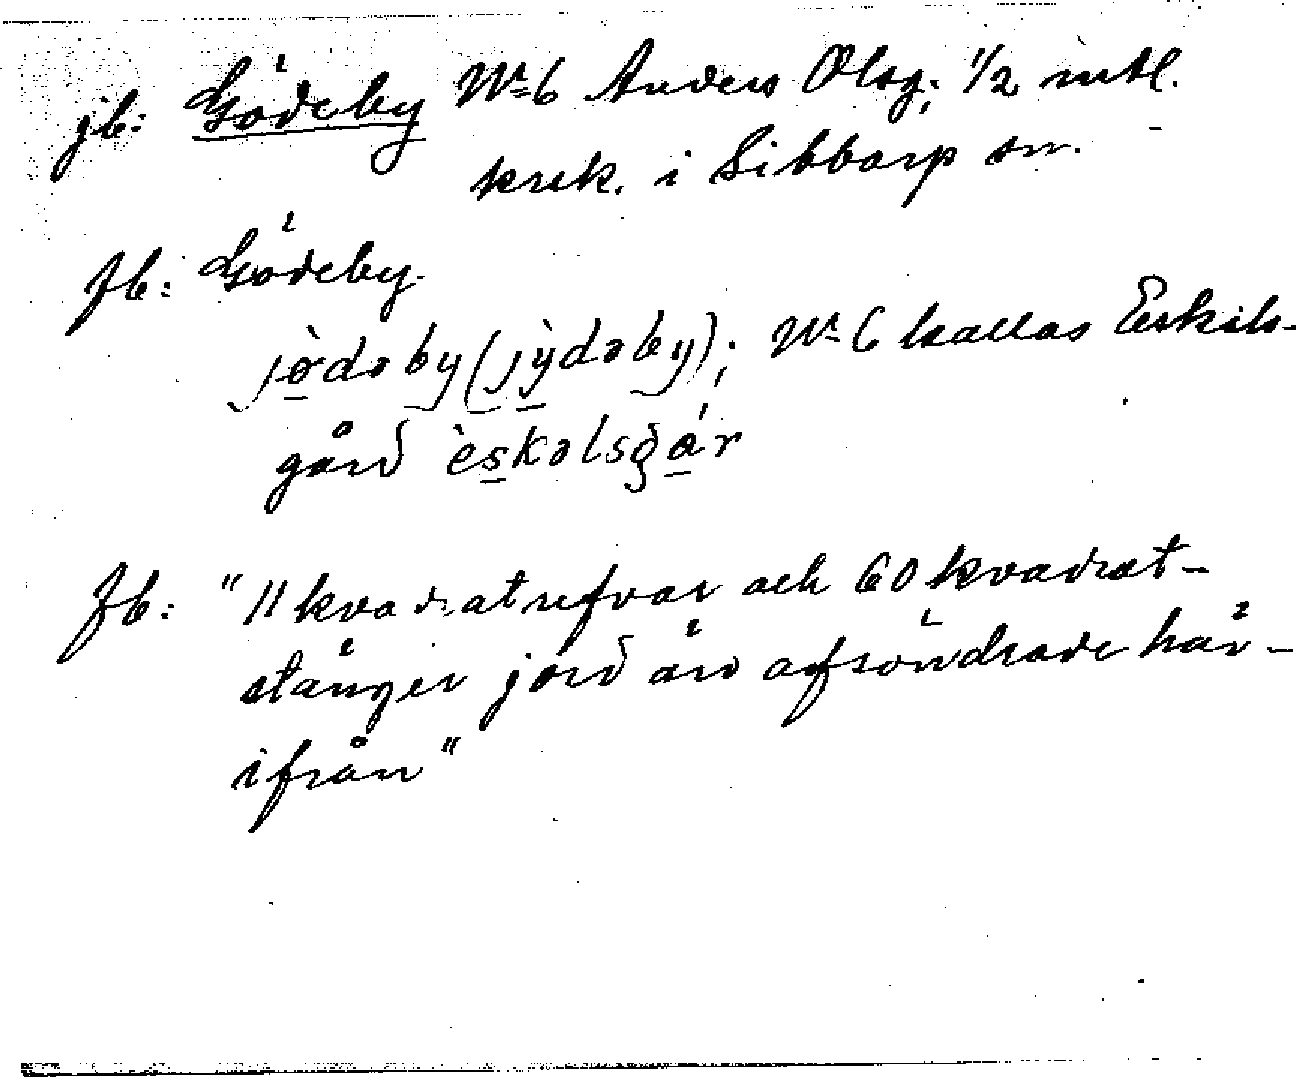 jb: Gödeby No 6 Anders Olsg; 1/2 mtl.
krsk. i Sibbarp sn.
Jb: Gödeby.
jø̀dəby (jỳdəby); No 6 kallas Eskils-
gård èskəlsgár
Jb: "11 kvadratrefvar och 60 kvadrat-
stänger jord äro afsöndrade här-
ifrån"